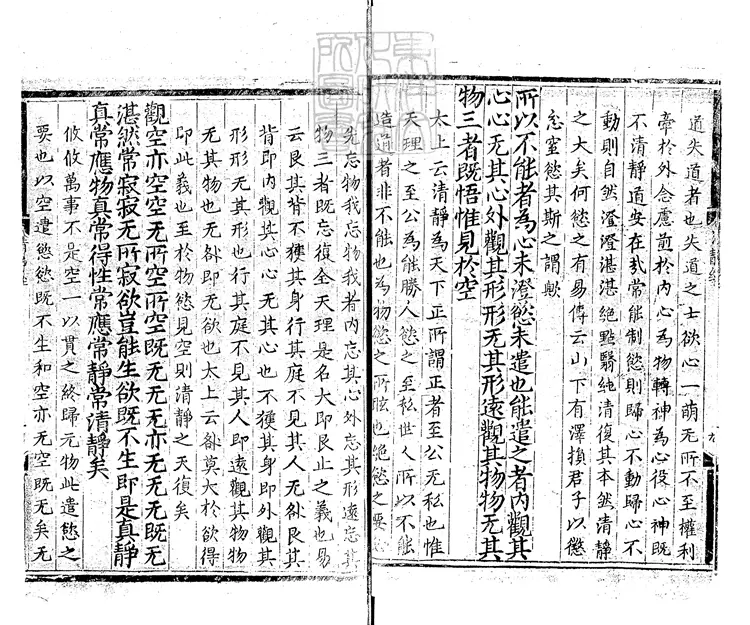 道失道者也失道之士欲心一萌无所不至權利
牽於外念慮煎於内心為物轉神為心役心神既
不清静道安在㢤常能制慾則歸心不動歸心不
動則自然澄澄湛湛絶點翳純清復其本然清静
之大矣何慾之有易傳云山下有澤損君子以懲
忿窒慾其斯之謂歟
所以不能者為心未澄慾未遣也能遣之者内觀其
心心无其心外觀其形形无其形遠觀其物物无其
物三者既悟惟見於空
太上云清静為天下正所謂正者至公无私也惟
天理之至公為能勝人慾之至私世人所以不能
造道者非不能也為物慾之所眩也絶慾之要
先忘物我忘物我者内忘其心外忘其形遠忘其
物三者既忘復全天理是名大即艮止之義也易
云艮其背不獲其身行其庭不見其人无咎艮其
背即内觀其心心无其心也不獲其身即外觀其
形形无其形也行其庭不見其人即遠觀其物物
无其物也无咎即无欲也太上云咎莫大於欲得
即此義也至於物慾見空則清静之天復矣
觀空亦空空无所空所空既无无无亦无无无既无
湛然常寂寂无所寂欲豈能生欲既不生即是真静
真常應物真常得性常應常靜常清静矣
攸攸萬事不是空一以貫之終歸元物此遣慾之
要也以空遣慾慾既不生和空亦无空既无矣无